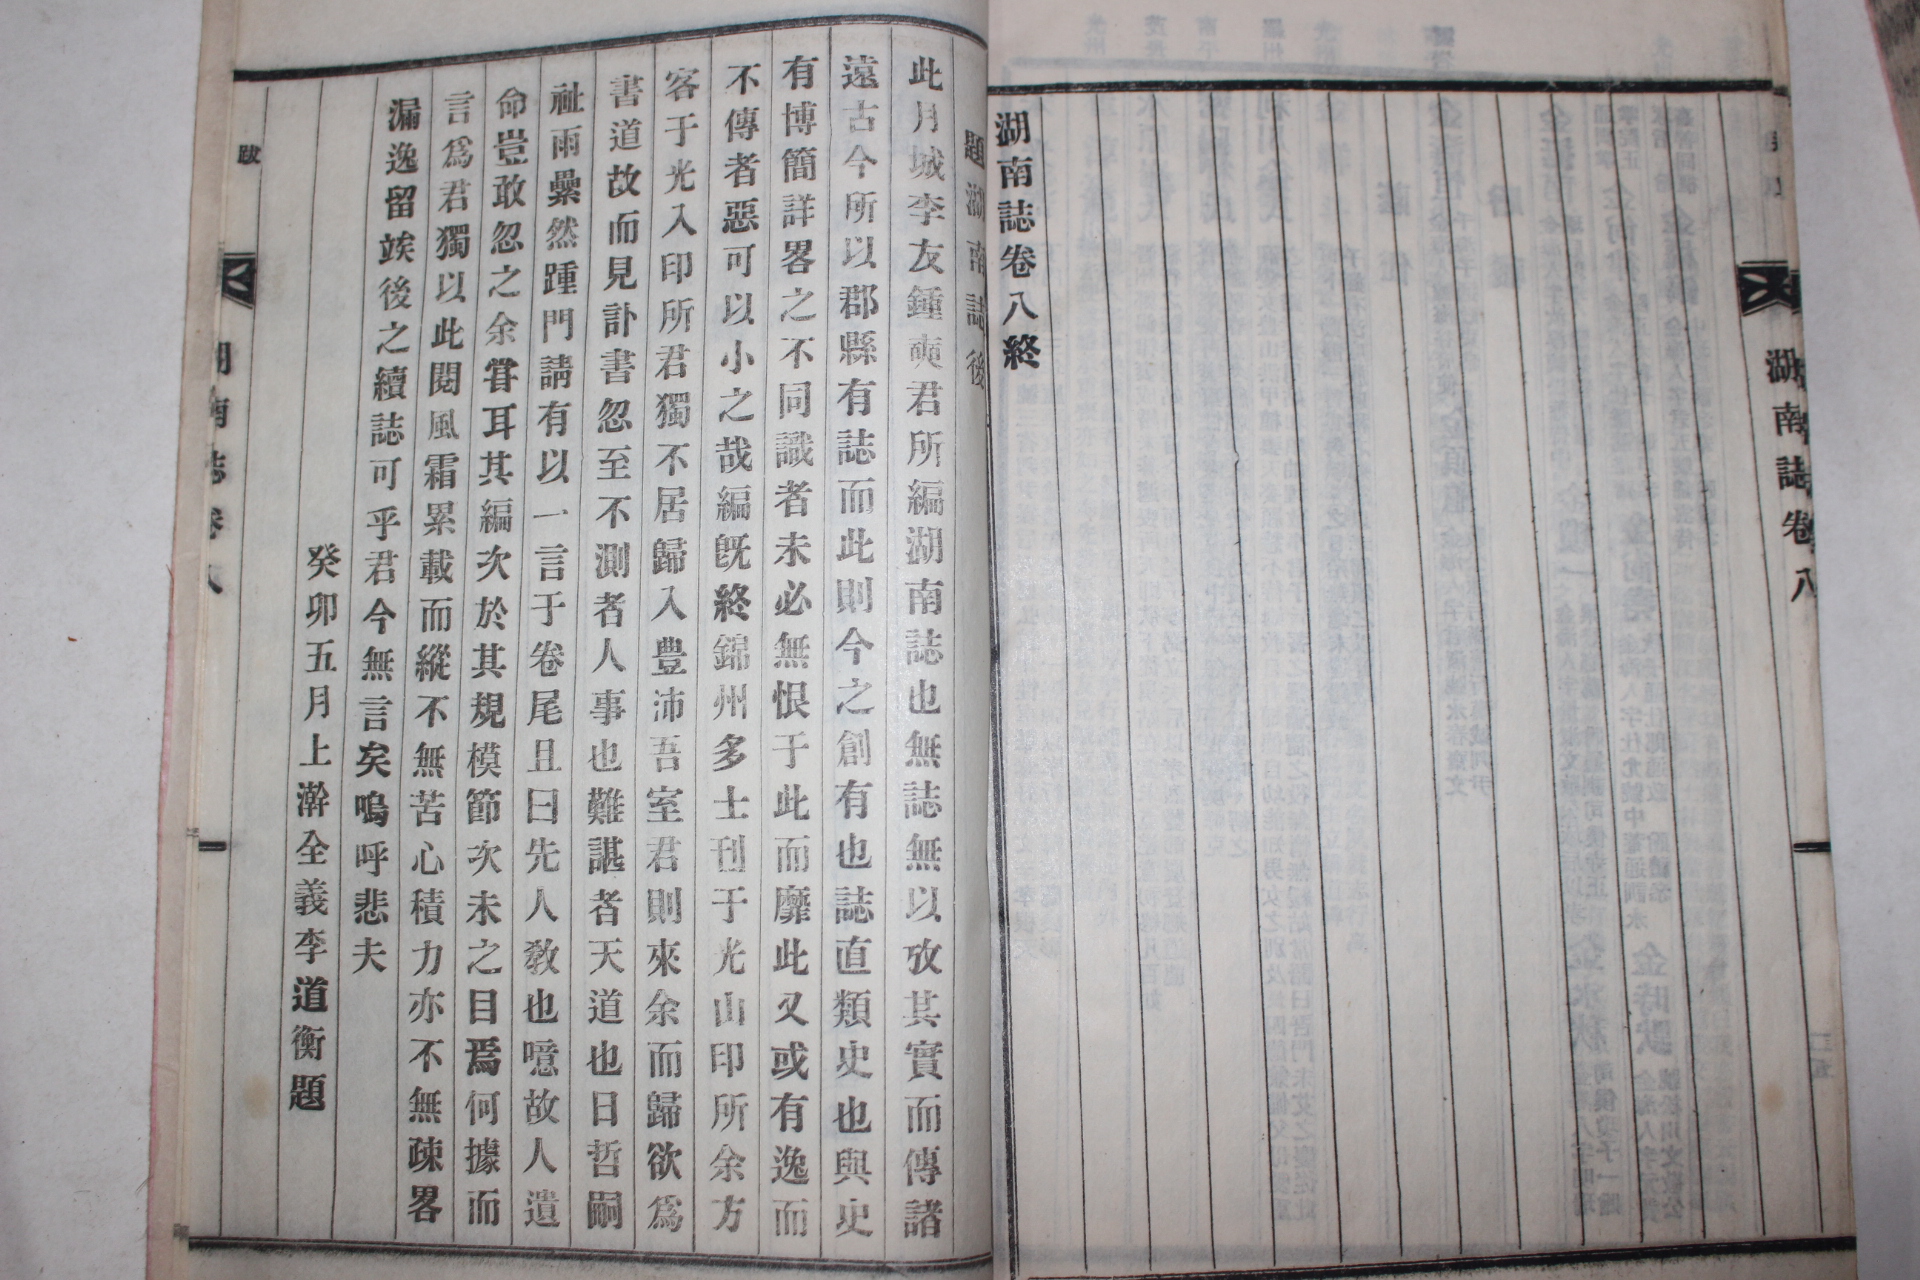 湖南誌卷八
湖南誌卷八終
題湖南誌後
此月城李友鍾奭君所編湖南誌也無誌無以攷其實而傳諸
遠古今所以郡縣有誌而此則今之創有也誌直類史也與史
有博簡詳畧之不同識者未必無恨于此而靡此又或有逸而
不傳者惡可以小之哉編旣終錦州多士刊于光山印所余方
客于光入印所君獨不居歸入豊沛吾室君則來余而歸欲爲
書道故而見訃書忽至不測者人事也難諶者天道也日哲嗣
祉雨纍然踵門請有以一言于卷尾且曰先人敎也噫故人遺
命豈敢忽之余甞耳其編次於其規模節次未之目焉何據而
言爲君獨以此閱風霜累載而縱不無苦心積力亦不無疎畧
漏逸留竢後之續誌可乎君今無言矣嗚呼悲夫
癸卯五月上澣全義李道衡題
跋
湖南誌卷八